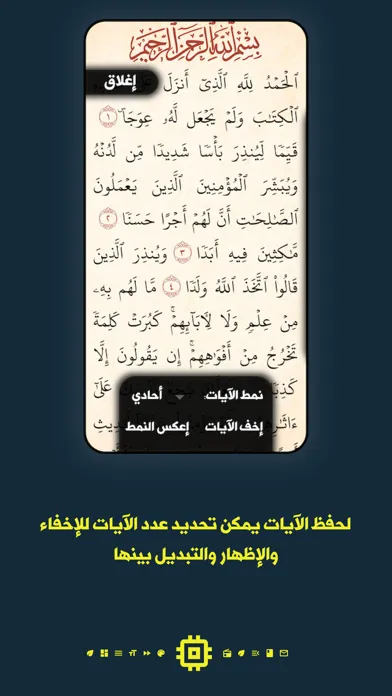 بِسْمِ ٱللَّهِ ٱلرَّحْمَٰنِ ٱلرَّحِيمِ
ٱلْحَمْدُ لِلَّهِ ٱلَّذِىٓ أَنزَلَ
إغلاق
ٱلْكِتَٰبَ وَلَمْ يَجْعَل لَّهُۥ عِوَجَاۜ ١
قَيِّمًا لِّيُنذِرَ بَأْسًا شَدِيدًا مِّن لَّدُنْهُ
وَيُبَشِّرَ ٱلْمُؤْمِنِينَ ٱلَّذِينَ يَعْمَلُونَ
ٱلصَّٰلِحَٰتِ أَنَّ لَهُمْ أَجْرًا حَسَنًا ٢
مَّٰكِثِينَ فِيهِ أَبَدًا ٣ وَيُنذِرَ ٱلَّذِينَ
قَالُوا۟ ٱتَّخَذَ ٱللَّهُ وَلَدًا ٤ مَّا لَهُم بِهِۦ
مِنْ عِلْمٍ وَلَا لِـَٔابَآئِهِمْ ۚ كَبُرَتْ كَلِمَةً
تَخْرُجُ مِنْ أَفْوَٰهِهِمْ ۚ إِن يَقُولُونَ إِلَّا
نمط الآيات أحادي
إخف الآيات إعكس النمط
لحفظ الآيات يمكن تحديد عدد الآيات للإخفاء
والإظهار والتبديل بينها